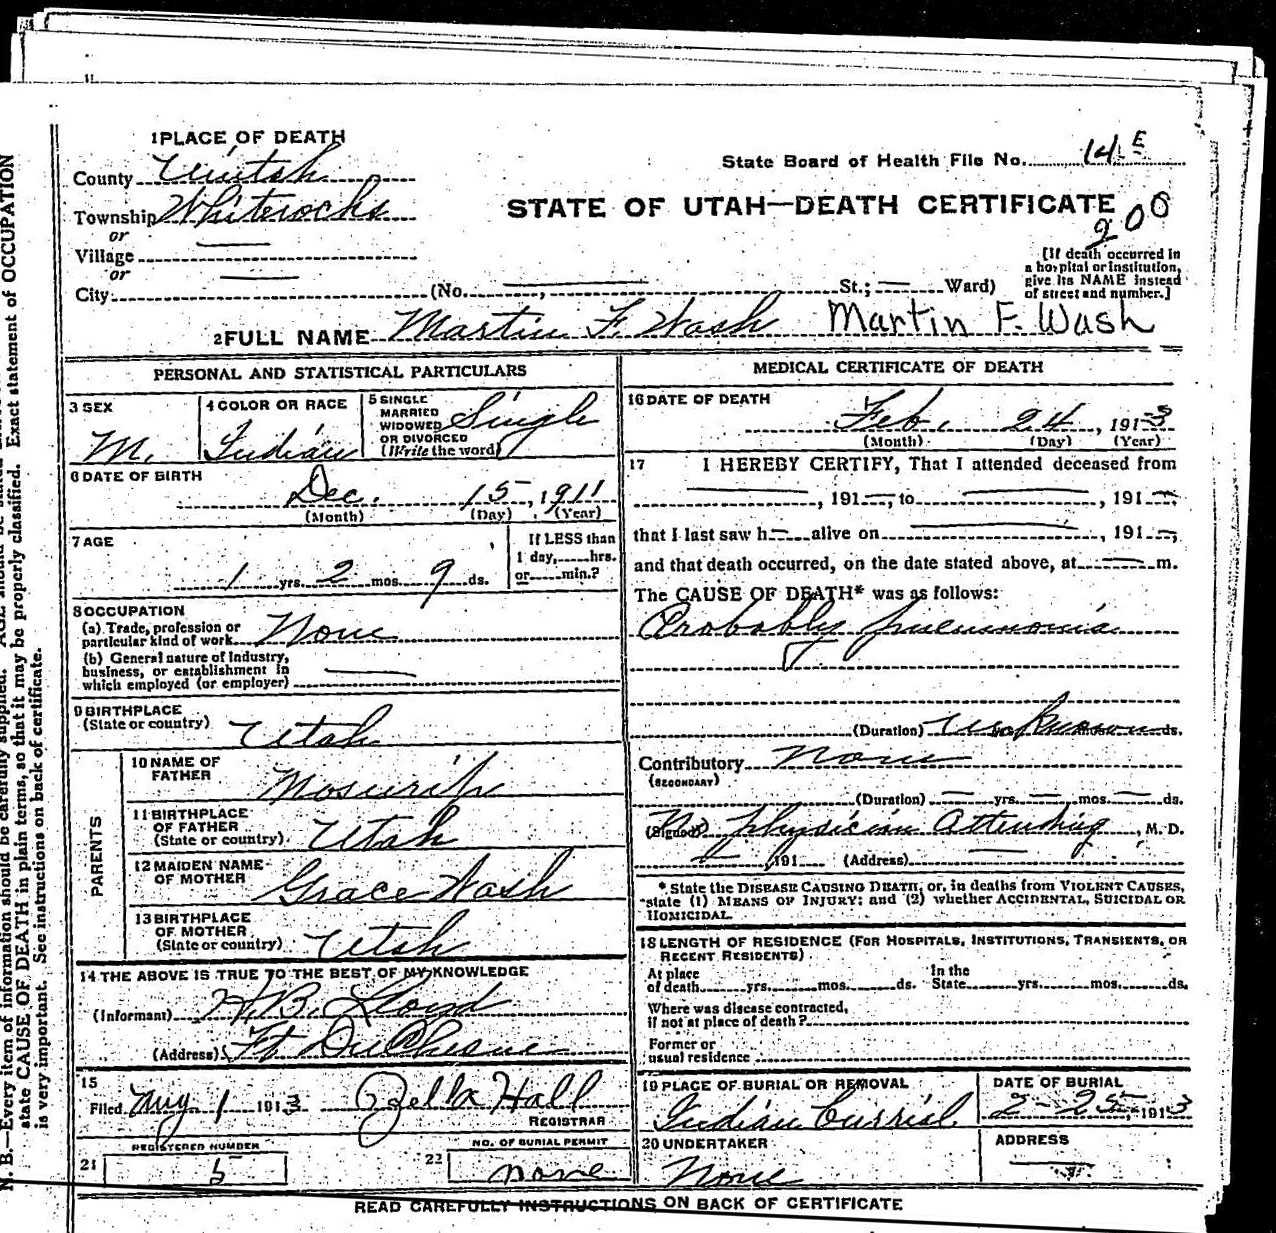 1 PLACE OF DEATH
County Uintah
Township Whiterocks
or
Village
or
City (No. , St.; Ward)
State Board of Health File No. 14 E
STATE OF UTAH—DEATH CERTIFICATE
200
[If death occurred in
a hospital or institution,
give its NAME instead
of street and number.]
2 FULL NAME Martin F. Wash Martin F. Wash
PERSONAL AND STATISTICAL PARTICULARS
3 SEX
M.
4 COLOR OR RACE
Indian
5 SINGLE
MARRIED
WIDOWED
OR DIVORCED
(Write the word)
Single
6 DATE OF BIRTH
Dec. 15, 1911
(Month) (Day) (Year)
7 AGE
1 yrs. 2 mos. 9 ds.
If LESS than
1 day, hrs.
or min.?
8 OCCUPATION
(a) Trade, profession or
particular kind of work None
(b) General nature of industry,
business, or establishment in
which employed (or employer)
9 BIRTHPLACE
(State or country) Utah
PARENTS
10 NAME OF
FATHER
11 BIRTHPLACE
OF FATHER
(State or country) Utah
12 MAIDEN NAME
OF MOTHER Grace Wash
13 BIRTHPLACE
OF MOTHER
(State or country) Utah
14 THE ABOVE IS TRUE TO THE BEST OF MY KNOWLEDGE
(Informant) H.B. Lloyd
(Address) Ft. DuChesne
15
Filed May 1 1913 Zella Hall
REGISTRAR
REGISTERED NUMBER
21 5
NO. OF BURIAL PERMIT
22 none
MEDICAL CERTIFICATE OF DEATH
16 DATE OF DEATH
Feb. 24, 1913
(Month) (Day) (Year)
17 I HEREBY CERTIFY, That I attended deceased from
, 191 , to , 191
that I last saw h alive on , 191 ,
and that death occurred, on the date stated above, at m.
The CAUSE OF DEATH* was as follows:
Probably pneumonia
(Duration) Unknown ds.
Contributory None
(SECONDARY)
(Duration) yrs. mos. ds.
(Signed) No physician Attending, M. D.
, 191 (Address)
* State the DISEASE CAUSING DEATH, or, in deaths from VIOLENT CAUSES,
state (1) MEANS OF INJURY; and (2) whether ACCIDENTAL, SUICIDAL OR
HOMICIDAL.
18 LENGTH OF RESIDENCE (FOR HOSPITALS, INSTITUTIONS, TRANSIENTS, OR
RECENT RESIDENTS)
At place
of death yrs. mos. ds.
In the
State yrs. mos. ds.
Where was disease contracted,
if not at place of death?
Former or
usual residence
19 PLACE OF BURIAL OR REMOVAL
Indian Burrial
DATE OF BURIAL
2-25, 1913
20 UNDERTAKER
None
ADDRESS
READ CAREFULLY INSTRUCTIONS ON BACK OF CERTIFICATE
N. B.—Every item of information should be carefully supplied.
state CAUSE OF DEATH in plain terms, so that it may be properly classified. Exact statement of OCCUPATION
is very important. See instructions on back of certificate.